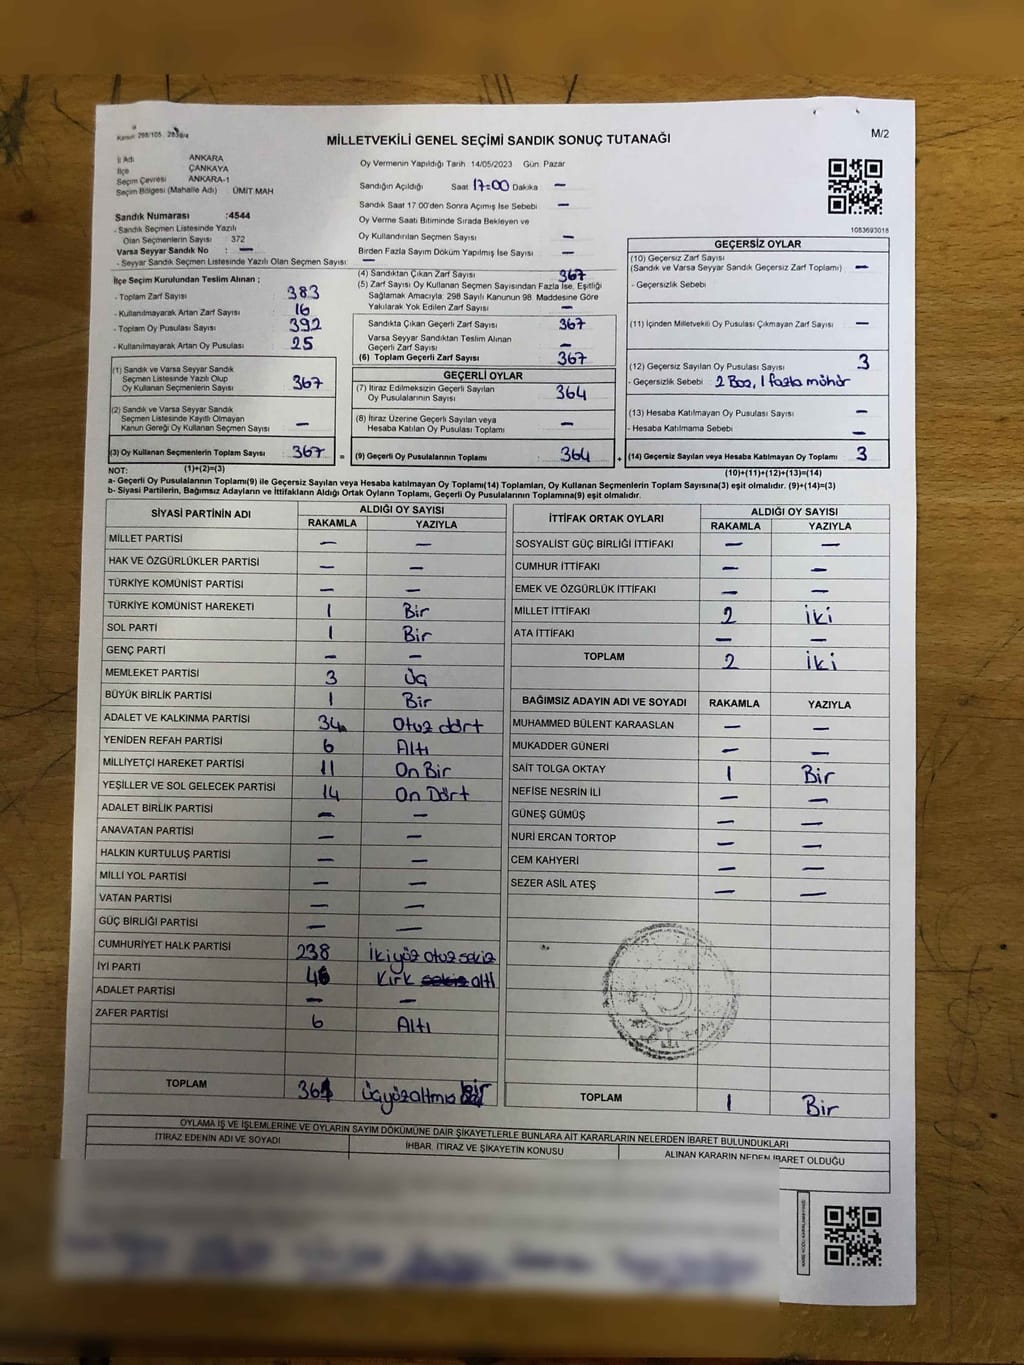 Kanun: 298/105
MİLLETVEKİLİ GENEL SEÇİMİ SANDIK SONUÇ TUTANAĞI
M/2
İl Adı ANKARA
İlçe ÇANKAYA
Seçim Çevresi ANKARA-1
Seçim Bölgesi (Mahalle Adı) ÜMİT MAH
Sandık Numarası :4544
- Sandık Seçmen Listesinde Yazılı
Olan Seçmenlerin Sayısı : 372
Varsa Seyyar Sandık No : —
- Seyyar Sandık Seçmen Listesinde Yazılı Olan Seçmen Sayısı: —
Oy Vermenin Yapıldığı Tarih 14/05/2023 Gün Pazar
Sandığın Açıldığı Saat 17:00 Dakika —
Sandık Saat 17.00'den Sonra Açılmış İse Sebebi —
Oy Verme Saati Bitiminde Sırada Bekleyen ve
Oy Kullandırılan Seçmen Sayısı —
Birden Fazla Sayım Döküm Yapılmış İse Sayısı —
1083693018
İlçe Seçim Kurulundan Teslim Alınan ;
- Toplam Zarf Sayısı 383
- Kullanılmayarak Artan Zarf Sayısı 16
- Toplam Oy Pusulası Sayısı 392
- Kullanılmayarak Artan Oy Pusulası 25
(1) Sandık ve Varsa Seyyar Sandık
Seçmen Listesinde Yazılı Olup
Oy Kullanan Seçmenlerin Sayısı 367
(2) Sandık ve Varsa Seyyar Sandık
Seçmen Listesinde Kayıtlı Olmayan
Kanun Gereği Oy Kullanan Seçmen Sayısı —
(3) Oy Kullanan Seçmenlerin Toplam Sayısı 367 =
(1)+(2)=(3)
(4) Sandıktan Çıkan Zarf Sayısı 367
(5) Zarf Sayısı Oy Kullanan Seçmen Sayısından Fazla İse, Eşitliği
Sağlamak Amacıyla, 298 Sayılı Kanunun 98. Maddesine Göre
Yakılarak Yok Edilen Zarf Sayısı —
Sandıkta Çıkan Geçerli Zarf Sayısı 367
Varsa Seyyar Sandıktan Teslim Alınan
Geçerli Zarf Sayısı —
(6) Toplam Geçerli Zarf Sayısı 367
GEÇERLİ OYLAR
(7) İtiraz Edilmeksizin Geçerli Sayılan
Oy Pusulalarının Sayısı 364
(8) İtiraz Üzerine Geçerli Sayılan veya
Hesaba Katılan Oy Pusulası Toplamı —
(9) Geçerli Oy Pusulalarının Toplamı : 364 +
GEÇERSİZ OYLAR
(10) Geçersiz Zarf Sayısı
(Sandık ve Varsa Seyyar Sandık Geçersiz Zarf Toplamı) —
- Geçersizlik Sebebi
(11) İçinden Milletvekili Oy Pusulası Çıkmayan Zarf Sayısı —
(12) Geçersiz Sayılan Oy Pusulası Sayısı 3
- Geçersizlik Sebebi : 2 Boş, 1 fazla mühür
(13) Hesaba Katılmayan Oy Pusulası Sayısı —
- Hesaba Katılmama Sebebi —
(14) Geçersiz Sayılan veya Hesaba Katılmayan Oy Toplamı : 3
(10)+(11)+(12)+(13)=(14)
NOT:
a- Geçerli Oy Pusulalarının Toplamı(9) ile Geçersiz Sayılan veya Hesaba katılmayan Oy Toplamı(14) Toplamları, Oy Kullanan Seçmenlerin Toplam Sayısına(3) eşit olmalıdır. (9)+(14)=(3)
b- Siyasi Partilerin, Bağımsız Adayların ve İttifakların Aldığı Ortak Oyların Toplamı, Geçerli Oy Pusulalarının Toplamına(9) eşit olmalıdır.
SİYASİ PARTİNİN ADI ALDIĞI OY SAYISI
RAKAMLA YAZIYLA
MİLLET PARTİSİ — —
HAK VE ÖZGÜRLÜKLER PARTİSİ — —
TÜRKİYE KOMÜNİST PARTİSİ — —
TÜRKİYE KOMÜNİST HAREKETİ 1 Bir
SOL PARTİ 1 Bir
GENÇ PARTİ — —
MEMLEKET PARTİSİ 3 Üç
BÜYÜK BİRLİK PARTİSİ 1 Bir
ADALET VE KALKINMA PARTİSİ 34 Otuz dört
YENİDEN REFAH PARTİSİ 6 Altı
MİLLİYETÇİ HAREKET PARTİSİ 11 On Bir
YEŞİLLER VE SOL GELECEK PARTİSİ 14 On Dört
ADALET BİRLİK PARTİSİ — —
ANAVATAN PARTİSİ — —
HALKIN KURTULUŞ PARTİSİ — —
MİLLİ YOL PARTİSİ — —
VATAN PARTİSİ — —
GÜÇ BİRLİĞİ PARTİSİ — —
CUMHURİYET HALK PARTİSİ 238 İkiyüz otuz sekiz
İYİ PARTİ 46 Kırk sekiz altı
ADALET PARTİSİ — —
ZAFER PARTİSİ 6 Altı
TOPLAM 361 Üçyüzaltmış bir
İTTİFAK ORTAK OYLARI ALDIĞI OY SAYISI
RAKAMLA YAZIYLA
SOSYALİST GÜÇ BİRLİĞİ İTTİFAKI — —
CUMHUR İTTİFAKI — —
EMEK VE ÖZGÜRLÜK İTTİFAKI — —
MİLLET İTTİFAKI 2 İki
ATA İTTİFAKI — —
TOPLAM 2 İki
BAĞIMSIZ ADAYIN ADI VE SOYADI RAKAMLA YAZIYLA
MUHAMMED BÜLENT KARAASLAN — —
MUKADDER GÜNERİ — —
SAİT TOLGA OKTAY 1 Bir
NEFİSE NESRİN İLİ — —
GÜNEŞ GÜMÜŞ — —
NURİ ERCAN TORTOP — —
CEM KAHYERİ — —
SEZER ASİL ATEŞ — —
TOPLAM 1 Bir
OYLAMA İŞ VE İŞLEMLERİNE VE OYLARIN SAYIM DÖKÜMÜNE DAİR ŞİKAYETLERLE BUNLARA AİT KARARLARIN NELERDEN İBARET BULUNDUKLARI
İTİRAZ EDENİN ADI VE SOYADI
İHBAR, İTİRAZ VE ŞİKAYETİN KONUSU
ALINAN KARARIN NEDEN İBARET OLDUĞU